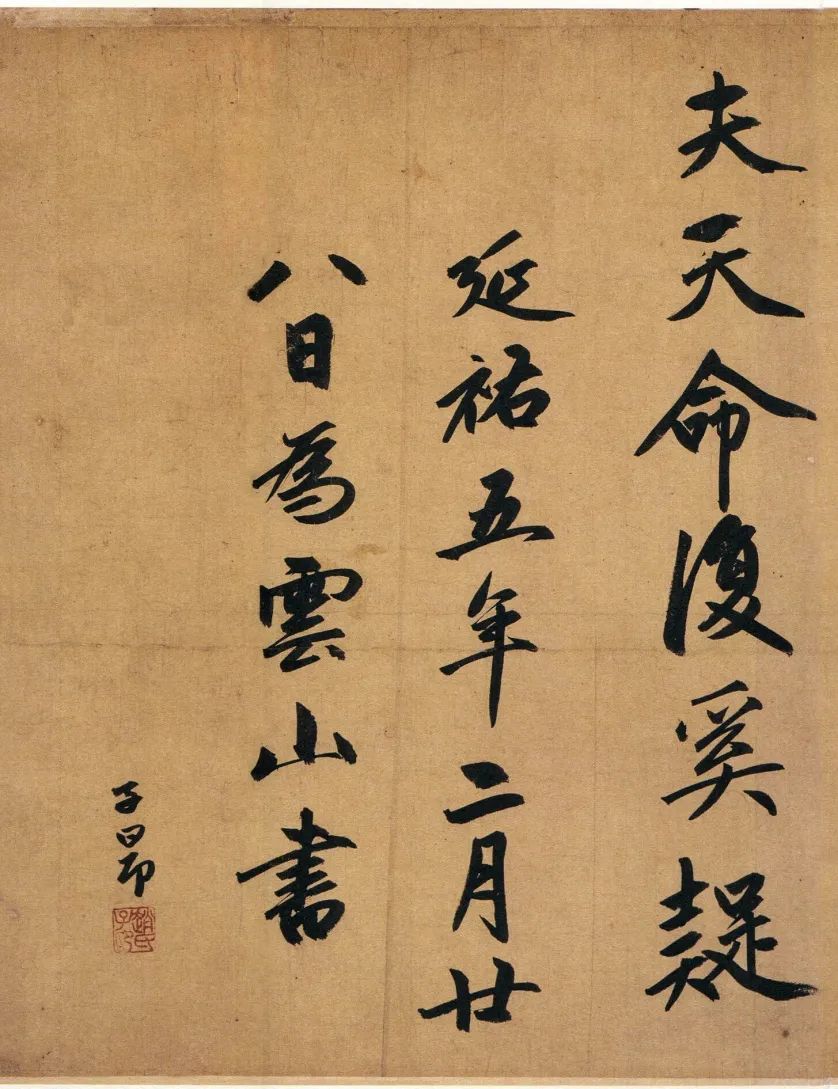 夫天命復奚疑
延祐五年二月廿
八日為雲山書
子昂
趙氏子昂